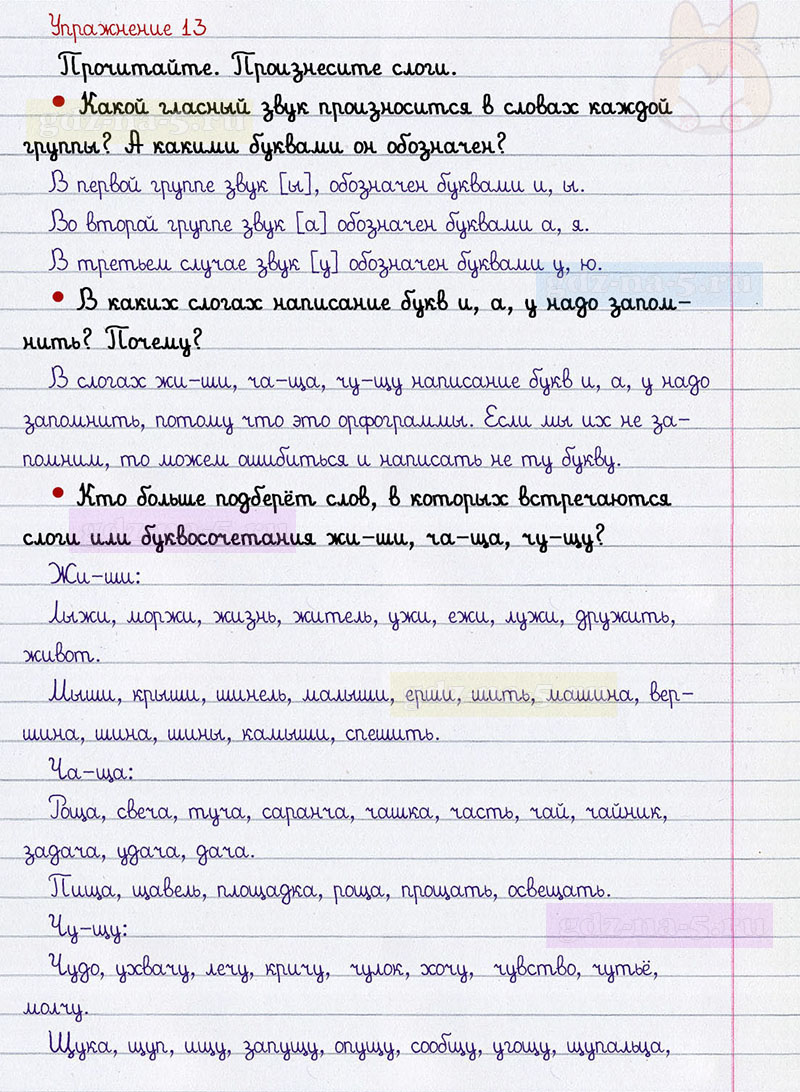 Упражнение 13
Прочитайте. Произнесите слоги.
• Какой гласный звук произносится в словах каждой
группы? А какими буквами он обозначен?
В первой группе звук [ы], обозначен буквами и, ы.
Во второй группе звук [а] обозначен буквами а, я.
В третьем случае звук [у] обозначен буквами у, ю.
• В каких слогах написание букв и, а, у надо запом-
нить? Почему?
В слогах жи-ши, ча-ща, чу-щу написание букв и, а, у надо
запомнить, потому что это орфограммы. Если мы их не за-
помним, то можем ошибиться и написать не ту букву.
• Кто больше подберёт слов, в которых встречаются
слоги или буквосочетания жи-ши, ча-ща, чу-щу?
Жи-ши:
Лыжи, моржи, жизнь, житель, ужи, ежи, лужи, дружить,
живот.
Мыши, крыши, шинель, малыши, ерши, шить, машина, вер-
шина, шина, шины, камыши, спешить.
Ча-ща:
Роща, свеча, туча, саранча, чашка, часть, чай, чайник,
задача, удача, дача.
Пища, щавель, площадка, роща, прощать, освещать.
Чу-щу:
Чудо, ухвачу, лечу, кричу, чулок, хочу, чувство, чутьё,
молчу.
Щука, щуп, ищу, запущу, опущу, сообщу, угощу, щупальца,
gdz-na-5.ru
gdz-na-5.ru
gdz-na-5.ru
gdz-na-5.ru
gdz-na-5.ru